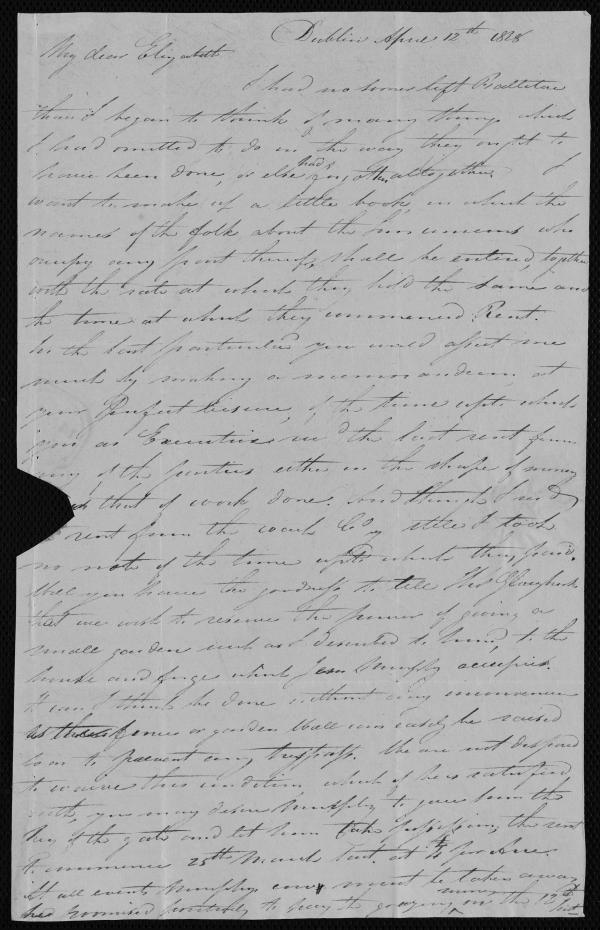 Dublin April 12th 1828
My dear Elizabeth
I had no sooner left Ballitore
than I began to think of many things which
I had omitted to do in the way they ought to
have been done, or else had forgotten altogether I
want to make up a little book, in which the
names of the folk about the concerns who
occupy any part thereof, shall be entered, together
with the rate at which they hold the same and
the time at which they commenced Rent.
In the last particular you could assist me
much by making a memorandum, at
your Perfect leisure, of the time upto which
you as Executrix recd the last rent from
any of the parties either in the shape of money
that of work done. And though I recd
rent from the Coach Coy still I took
no note of the time upto which they paid.
Will you have the goodness to tell Thos
that we wish to reserve the power of giving a
small garden such as I described to him, to the
house and forge which Murphy occupies.
It can I think be done without any inconvenience
as the fence or garden Wall can easily be raised
so as to prevent any trespass. We are not disposed
to waive this condition, which if he is satisfied
with, you may desire Murphy to give him the
key of the gate and let him take possession, the rent
to commence 25th March last. at £4 per Acre.
At all events Murphy's must be taken away
has promised positively to pay the grazing money on the 12th Inst